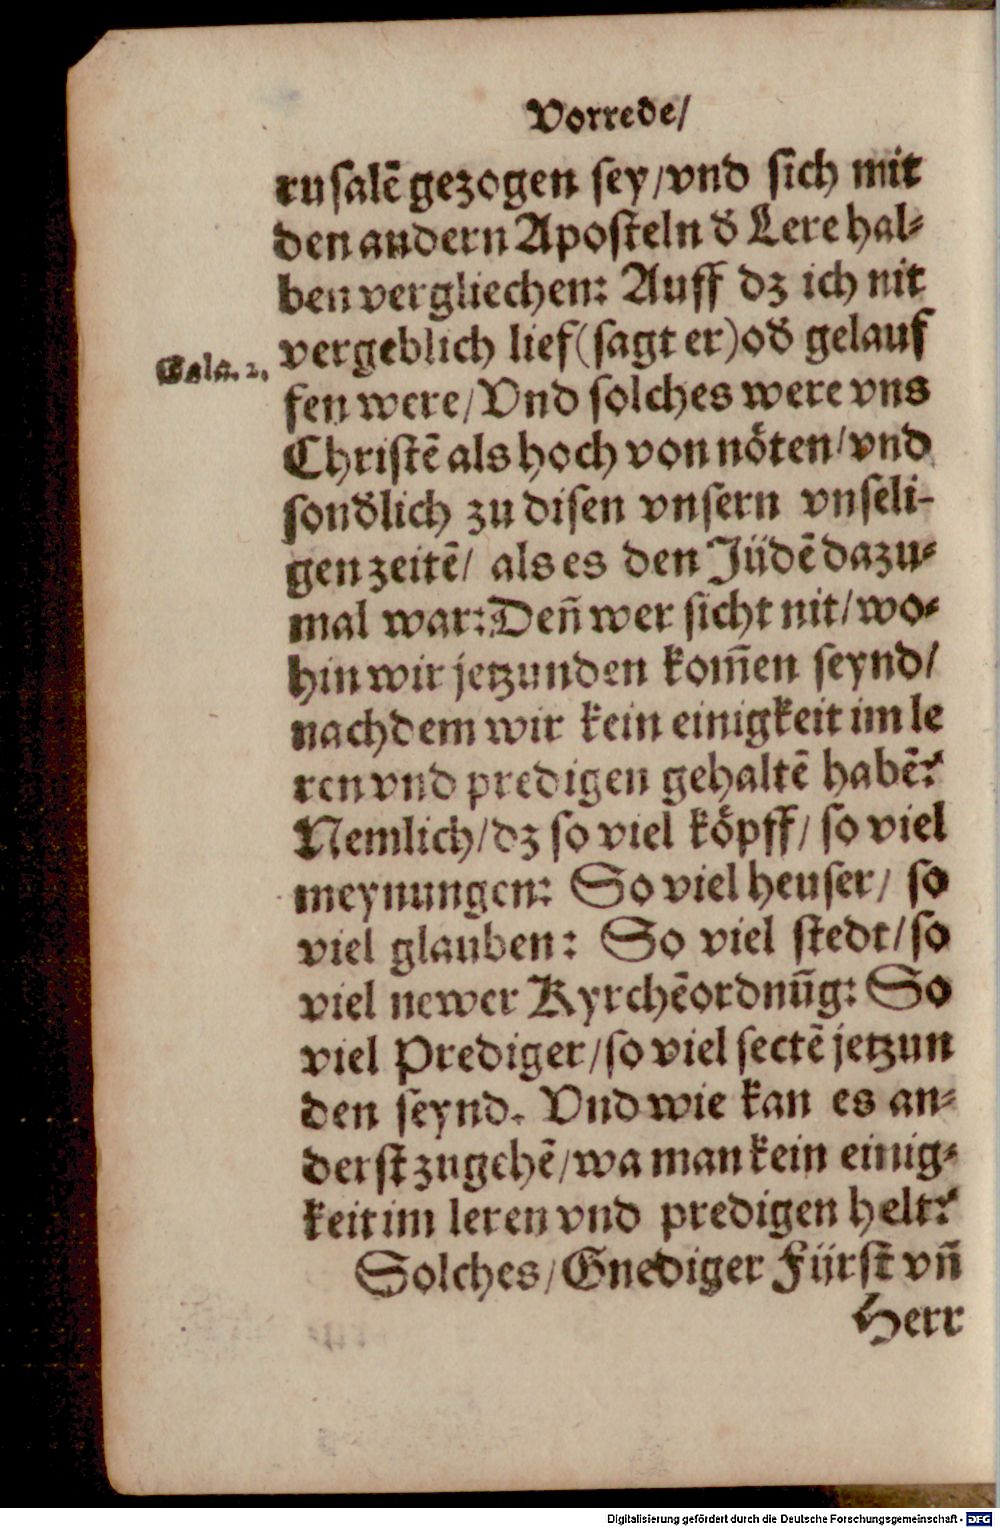 Vorrede/
rusalẽ gezogen sey/vnd sich mit
den andern Aposteln d̕ Lere hal⸗
ben vergliechen: Auff dz ich nit
vergeblich lief(sagt er)od̕ gelauf
Gala. 2.
fen were/Vnd solches were vns
Christẽ als hoch von nöten/vnd
sond̕lich zu disen vnsern vnseli-
gen zeitẽ/ als es den Jüdẽ dazu⸗
mal war: Den̄ wer sicht nit/wo⸗
hin wir jetzunden kom̄en seynd/
nachdem wir kein einigkeit im le
ren vnd predigen gehaltẽ habẽ?
Nemlich/dz so viel köpff/ so viel
meynungen: So viel heuser/ so
viel glauben: So viel stedt/so
viel newer Kyrchẽordnūg: So
viel Prediger/so viel sectẽ jetzun
den seynd. Vnd wie kan es an⸗
derst zugehẽ/wa man kein einig⸗
keit im leren vnd predigen helt?
Solches/Gnediger Fürst vn̄
Herr
Digitalisierung gefördert durch die Deutsche Forschungsgemeinschaft - DFG